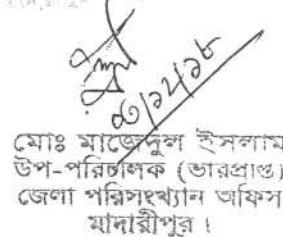 ৩/১২/১৮
মোঃ মাজেদুল ইসলাম
উপ-পরিচালক (ভারপ্রাপ্ত)
জেলা পরিসংখ্যান অফিস
মাদারীপুর।